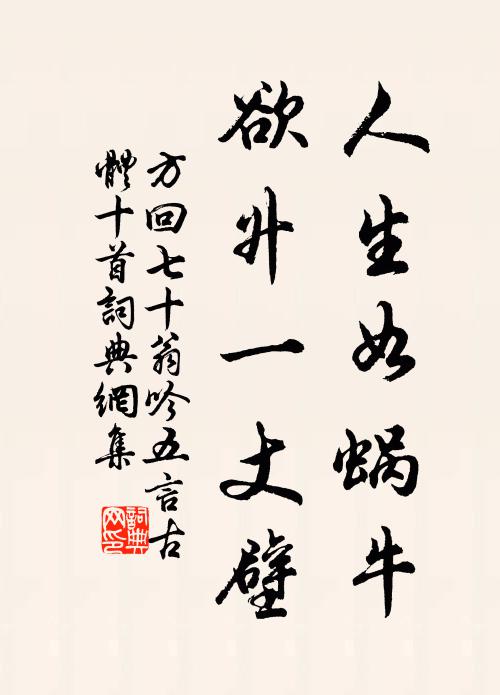 人生如蜗牛
欲升一丈壁
方回七十翁吟五言古
體十首詞典網集
詞典
网印